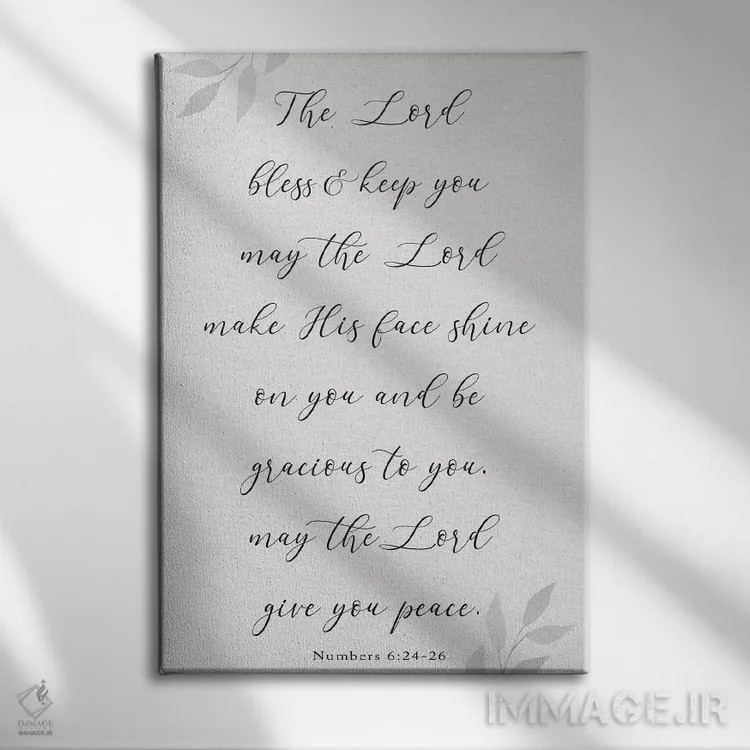 The Lord
bless & keep you
may the Lord
make His face shine
on you and be
gracious to you.
may the Lord
give you peace.
Numbers 6:24-26
IMMAGE
IMMAGE.IR
IMMAGE.IR